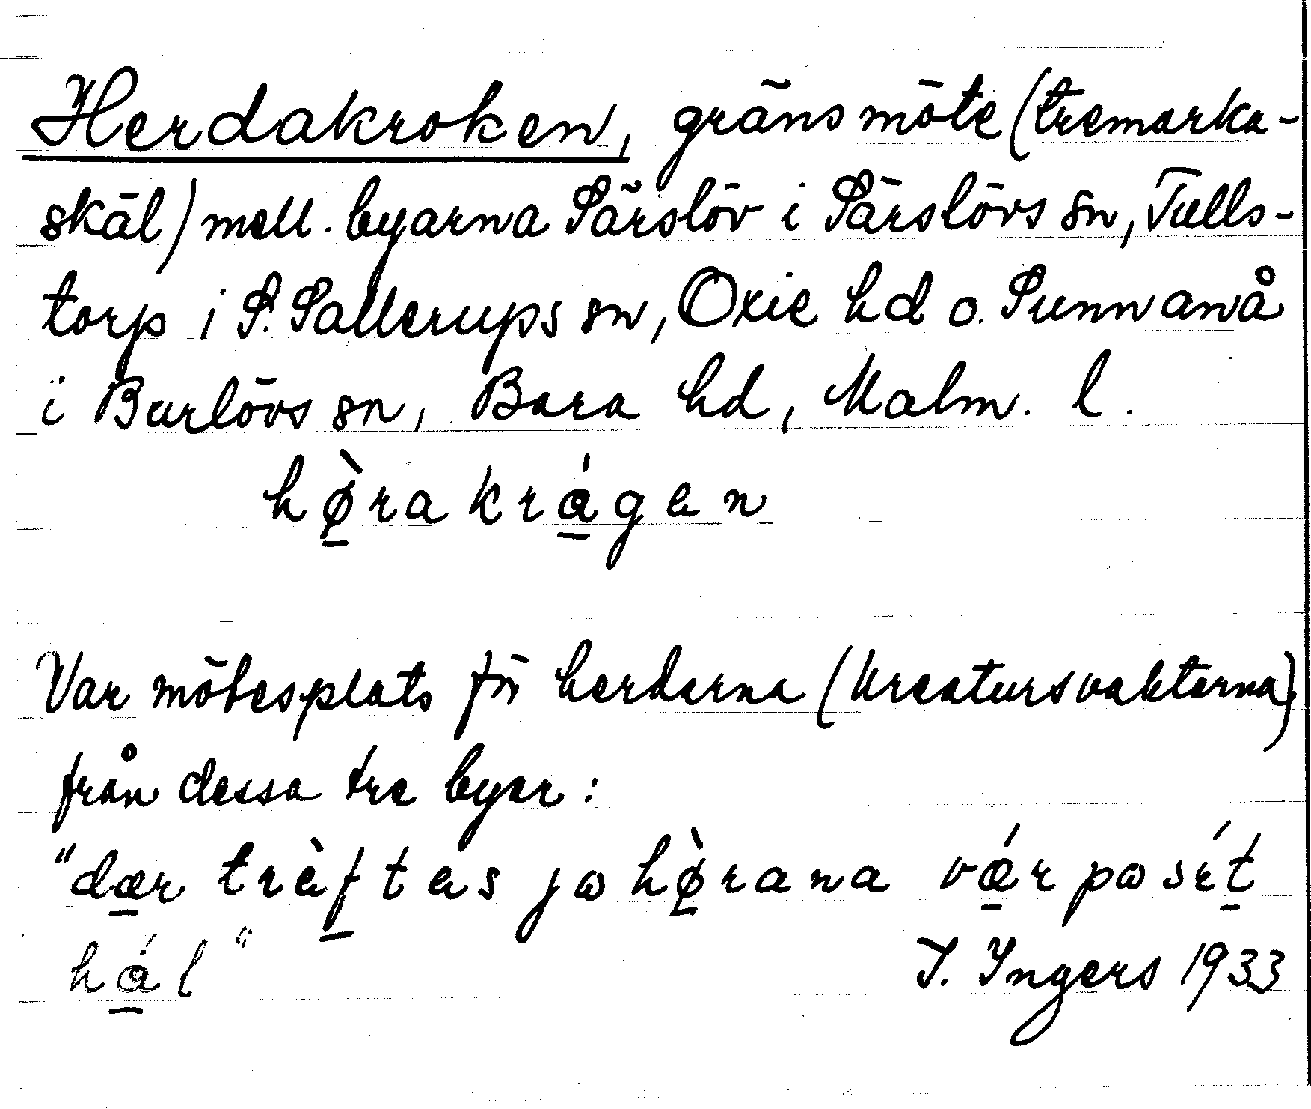 Herdakroken, gränsmöte (tremarka-
skäl) mell. byarna Särslöv i Särslövs sn, Tulls-
torp i S. Sallerups sn, Oxie hd o. Sunnanå
i Burlövs sn, Bara hd, Malm. l.
hø̀rakrágen
Var mötesplats för herderna (kreatursvakterna)
från dessa tre byar:
"dær trèftes jo hø̀rana vǽr po sít
hál"
I. Ingers 1933